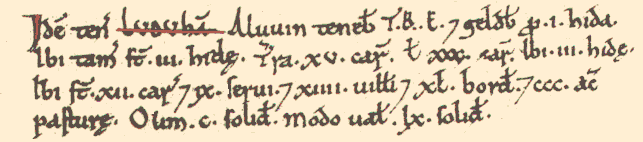 Idē ten̄ Luduhā Aluuin teneb̄ T.R.E. ⁊ geldb̄ p̄.i. hida.
Ibi tam̄ st̄.iii. hidę. Tr̄a.xv. car̄. t̄ xxx. car̄. Ibi.iii. hidę.
Ibi st̄.xii. car̄ ⁊ ix. serui.⁊ xiiii. uilli ⁊ xl. bord̄.⁊ ccc. ac̄
pasturę. Olim.c. solid̄. modo ual̄. lx. solid̄.